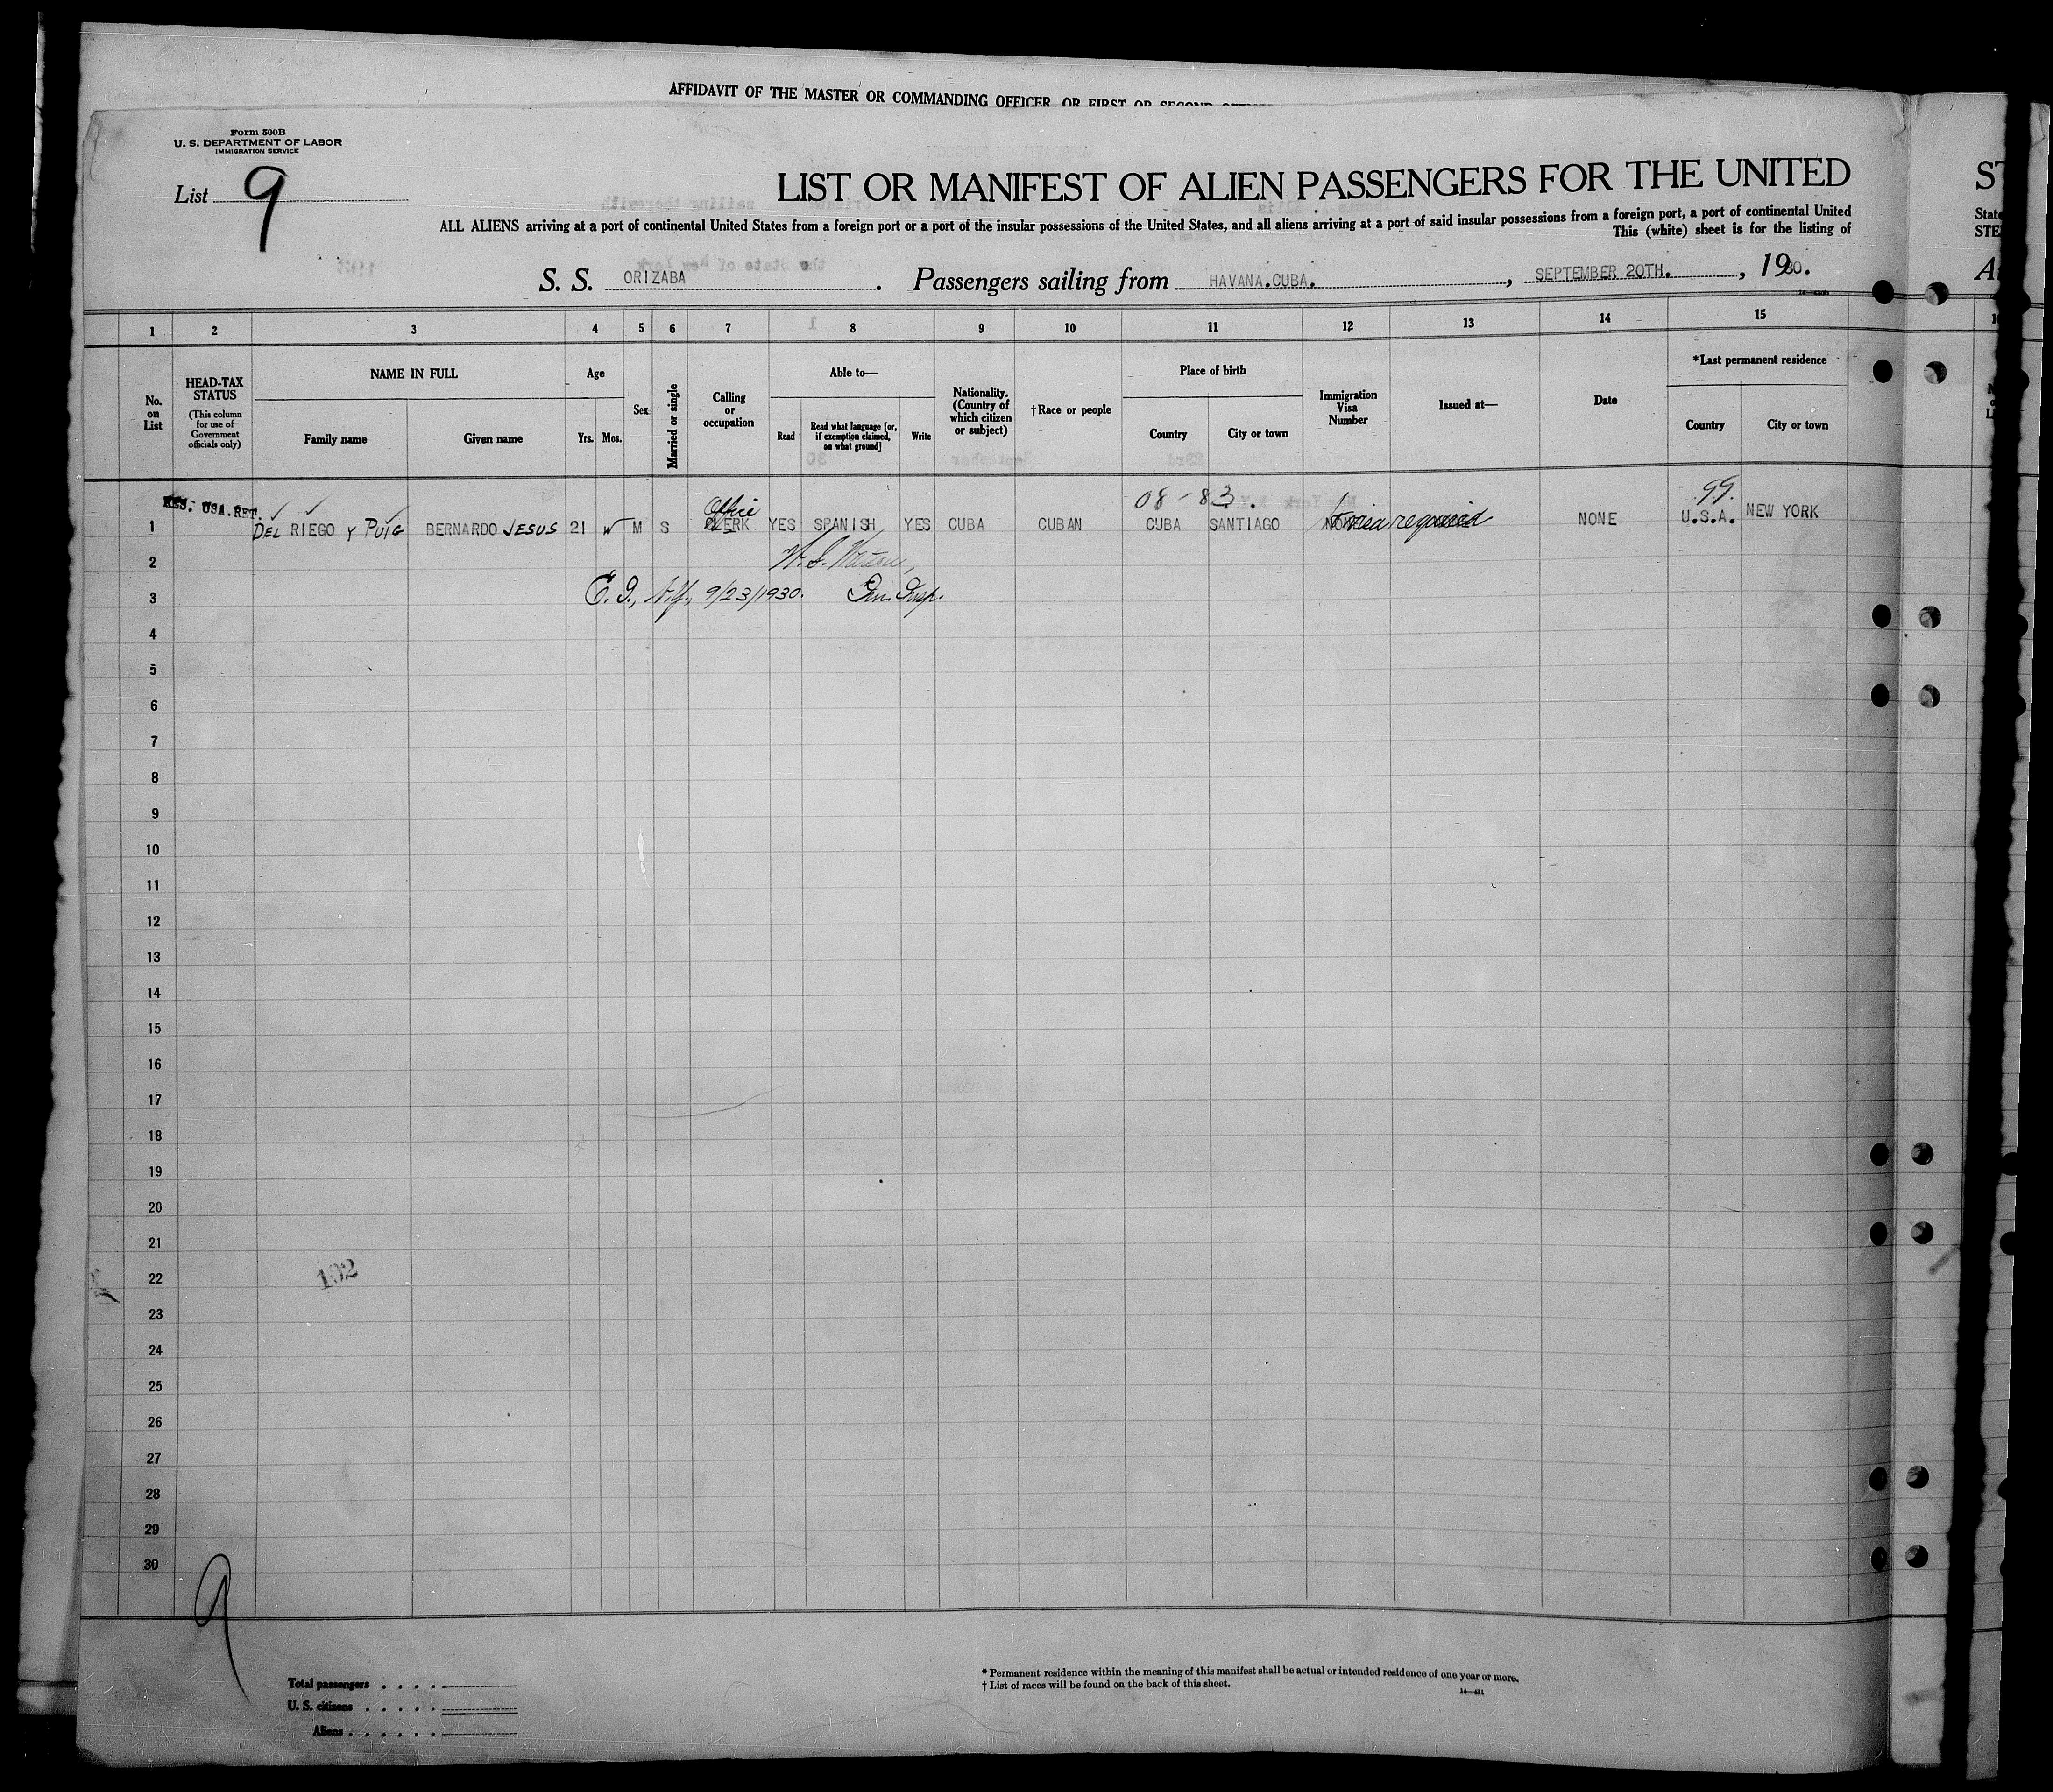 AFFIDAVIT OF THE MASTER OR COMMANDING OFFICER, OR FIRST OR SECOND
Form 500B
U. S. DEPARTMENT OF LABOR
IMMIGRATION SERVICE
List 9
LIST OR MANIFEST OF ALIEN PASSENGERS FOR THE UNITED
ALL ALIENS arriving at a port of continental United States from a foreign port or a port of the insular possessions of the United States, and all aliens arriving at a port of said insular possessions from a foreign port, a port of continental United
This (white) sheet is for the listing of
S. S. ORIZABA . Passengers sailing from HAVANA.CUBA. , SEPTEMBER 20TH. , 1930.
1 2 3 4 5 6 7 8 9 10 11 12 13 14 15
No. on List
HEAD-TAX STATUS
(This column for use of Government officials only)
NAME IN FULL
Family name
Given name
Age
Yrs. Mos.
Sex
Married or single
Calling or occupation
Able to—
Read
Read what language [or, if exemption claimed, on what ground]
Write
Nationality. (Country of which citizen or subject)
†Race or people
Place of birth
Country
City or town
Immigration Visa Number
Issued at—
Date
*Last permanent residence
Country
City or town
08-83. 99.
RES. USA.RET. Office
1 DEL RIEGO Y PUIG BERNARDO JESUS 21 M S CLERK YES SPANISH YES CUBA CUBAN CUBA SANTIAGO required NONE U.S.A. NEW YORK
2
3 N.Y., 9/23/1930. Insp.
4
5
6
7
8
9
10
11
12
13
14
15
16
17
18
19
20
21
22 102
23
24
25
26
27
28
29
30
9
Total passengers
U. S. citizens
Aliens
* Permanent residence within the meaning of this manifest shall be actual or intended residence of one year or more.
† List of races will be found on the back of this sheet.